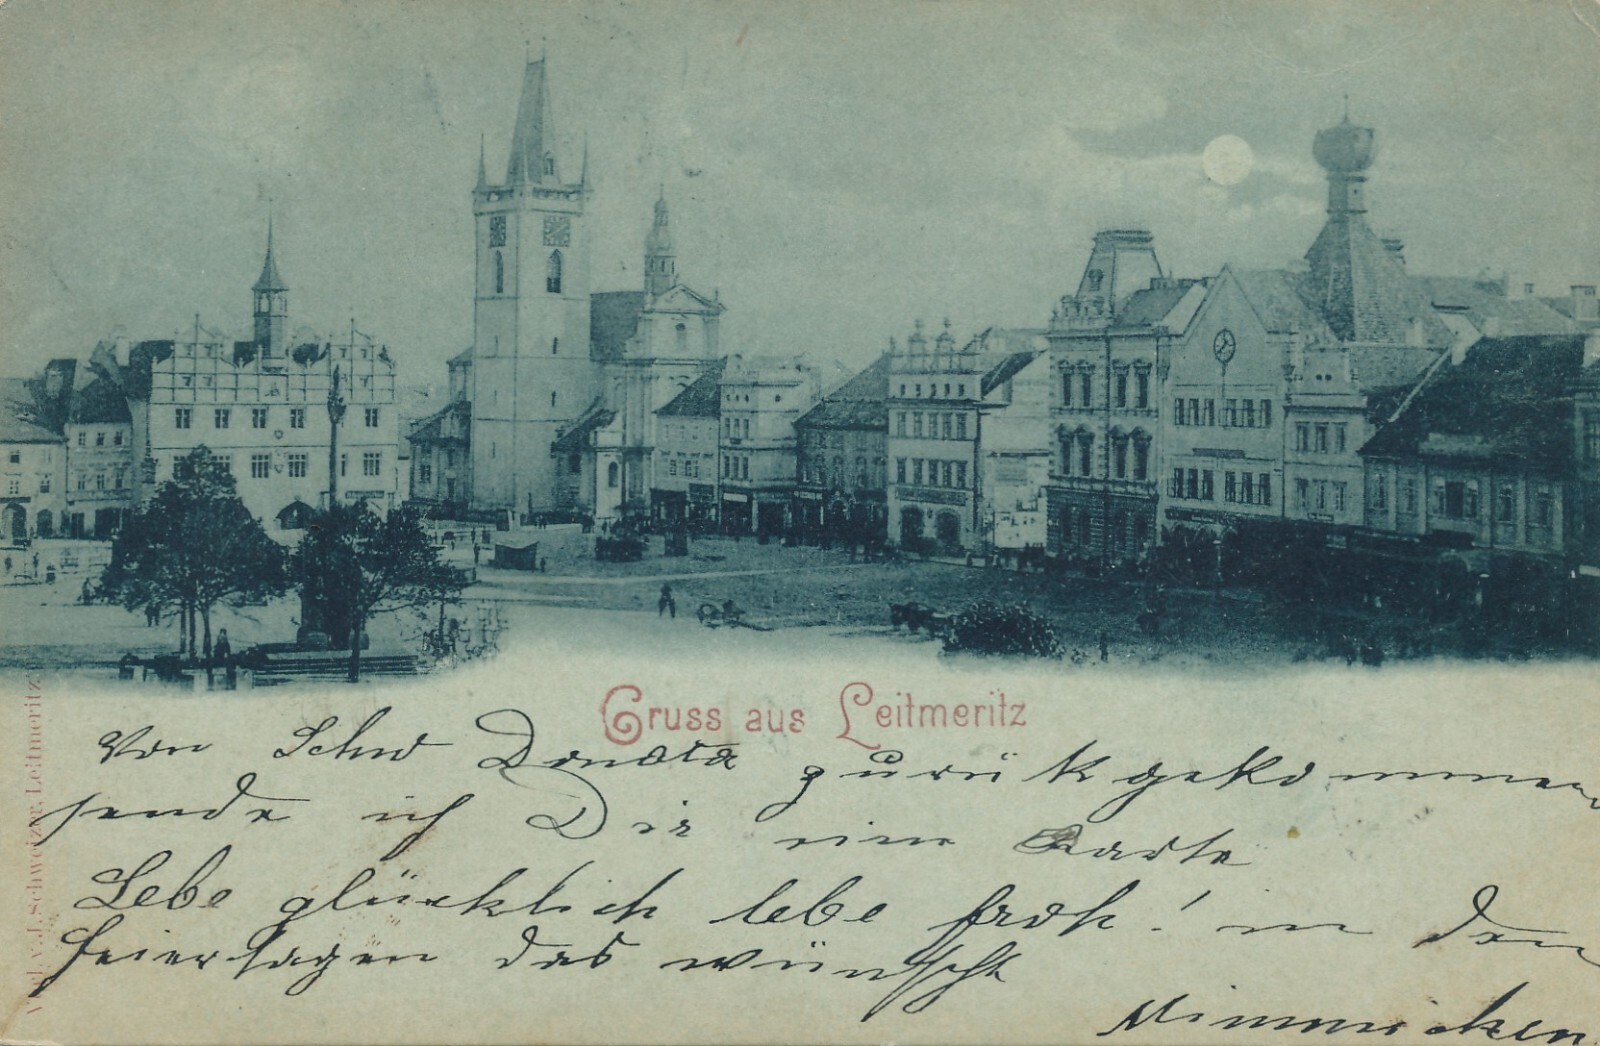 Gruss aus Leitmeritz
Von Schw Donata zurük gekommen
sende ich Dir eine Karte
Lebe glücklich lebe froh! in den
Feiertagen das wünscht
Mimmichen
Verl. v. J. Schweizer, Leitmeritz.